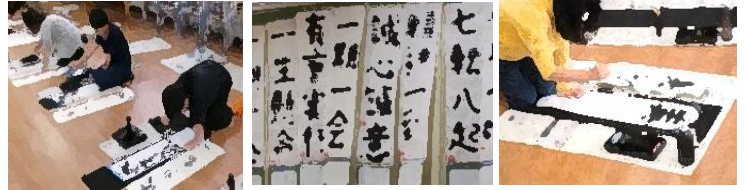 七転八起
精神一到
誠心誠意
一期一会
有言実行
一生懸命